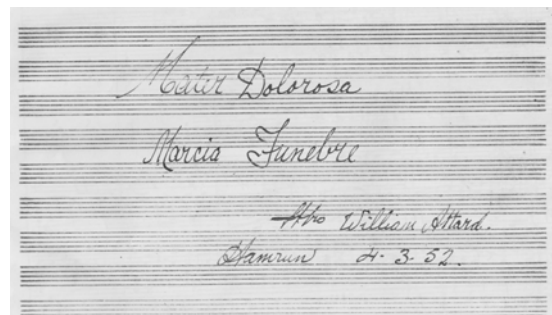 Mater Dolorosa
Marcia Funebre
William Attard.
Hamrun 4. 3. 52.